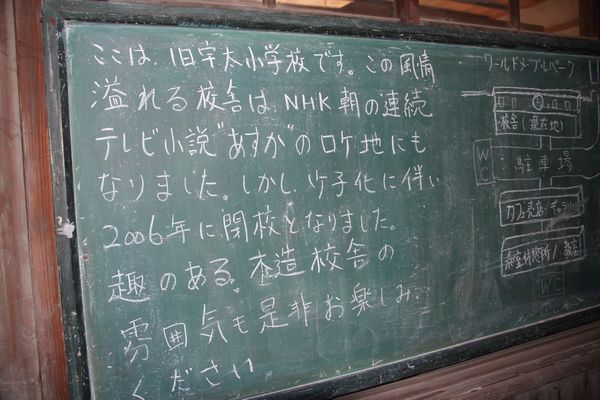 ここは、旧宇太小学校です。この風情
溢れる校舎は、NHK朝の連続
テレビ小説"あすか"のロケ地にも
なりました。しかし、少子化に伴い
2006年に閉校となりました。
趣のある木造校舎の
雰囲気も是非お楽しみ
ください
ワールドメープルパーク
校舎(現在地)
WC
駐車場
WC